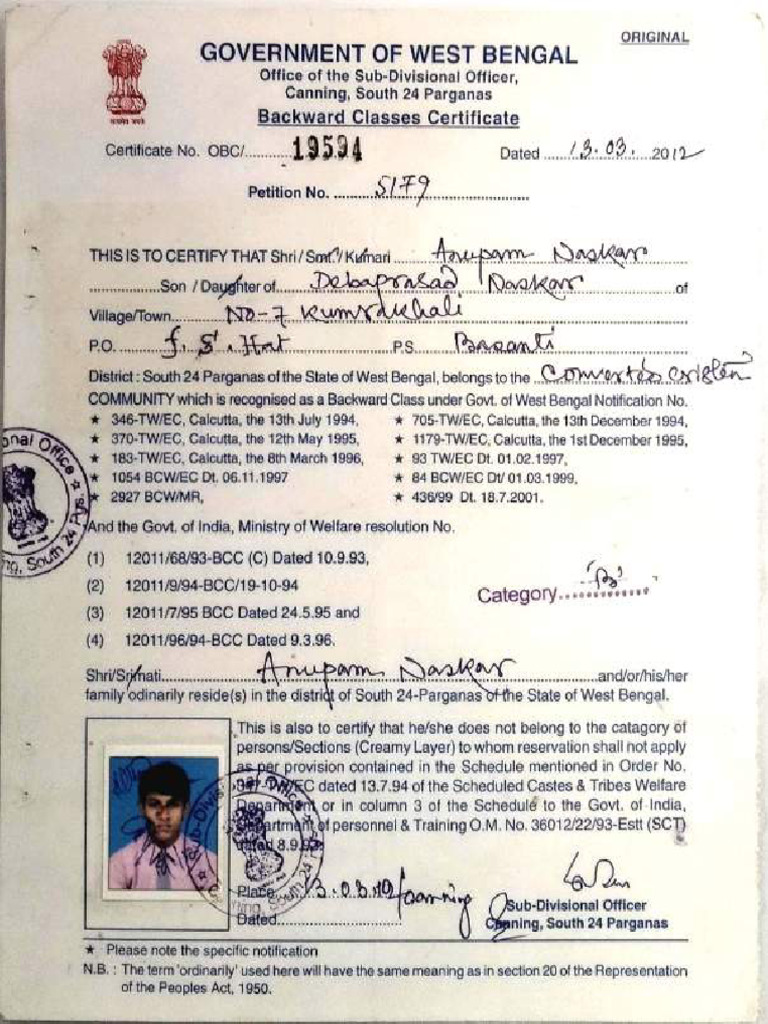 ORIGINAL
GOVERNMENT OF WEST BENGAL
Office of the Sub-Divisional Officer,
Canning, South 24 Parganas
Backward Classes Certificate
Certificate No. OBC/.......... 19594 Dated ..... 13.03. 2012
Petition No. ........ 5179
THIS IS TO CERTIFY THAT Shri / Smt. / Kumari Anupam Naskar
Son / Daughter of Debaprasad Naskar of
Village/Town NO-7 Kumrakhali
P.O. J. S. Hat P.S. Basanti
District : South 24 Parganas of the State of West Bengal, belongs to the
COMMUNITY which is recognised as a Backward Class under Govt. of West Bengal Notification No.
★ 346-TW/EC, Calcutta, the 13th July 1994, ★ 705-TW/EC, Calcutta, the 13th December 1994,
★ 370-TW/EC, Calcutta, the 12th May 1995, ★ 1179-TW/EC, Calcutta, the 1st December 1995,
★ 183-TW/EC, Calcutta, the 8th March 1996, ★ 93 TW/EC Dt. 01.02.1997,
★ 1054 BCW/EC Dt. 06.11.1997 ★ 84 BCW/EC Dt/ 01.03.1999,
★ 2927 BCW/MR, ★ 436/99 Dt. 18.7.2001.
And the Govt. of India, Ministry of Welfare resolution No.
(1) 12011/68/93-BCC (C) Dated 10.9.93,
(2) 12011/9/94-BCC/19-10-94
Category.............. 'B'
(3) 12011/7/95 BCC Dated 24.5.95 and
(4) 12011/96/94-BCC Dated 9.3.96.
Shri/Srimati Anupam Naskar and/or/his/her
family odinarily reside(s) in the district of South 24-Parganas of the State of West Bengal.
This is also to certify that he/she does not belong to the catagory of
persons/Sections (Creamy Layer) to whom reservation shall not apply
as per provision contained in the Schedule mentioned in Order No.
TW/EC dated 13.7.94 of the Scheduled Castes & Tribes Welfare
Department or in column 3 of the Schedule to the Govt. of India,
Department of personnel & Training O.M. No. 36012/22/93-Estt (SCT)
dated 8.9.93
Place Canning
Dated
Sub-Divisional Officer
Canning, South 24 Parganas
★ Please note the specific notification
N.B. : The term 'ordinarily' used here will have the same meaning as in section 20 of the Representation
of the Peoples Act, 1950.